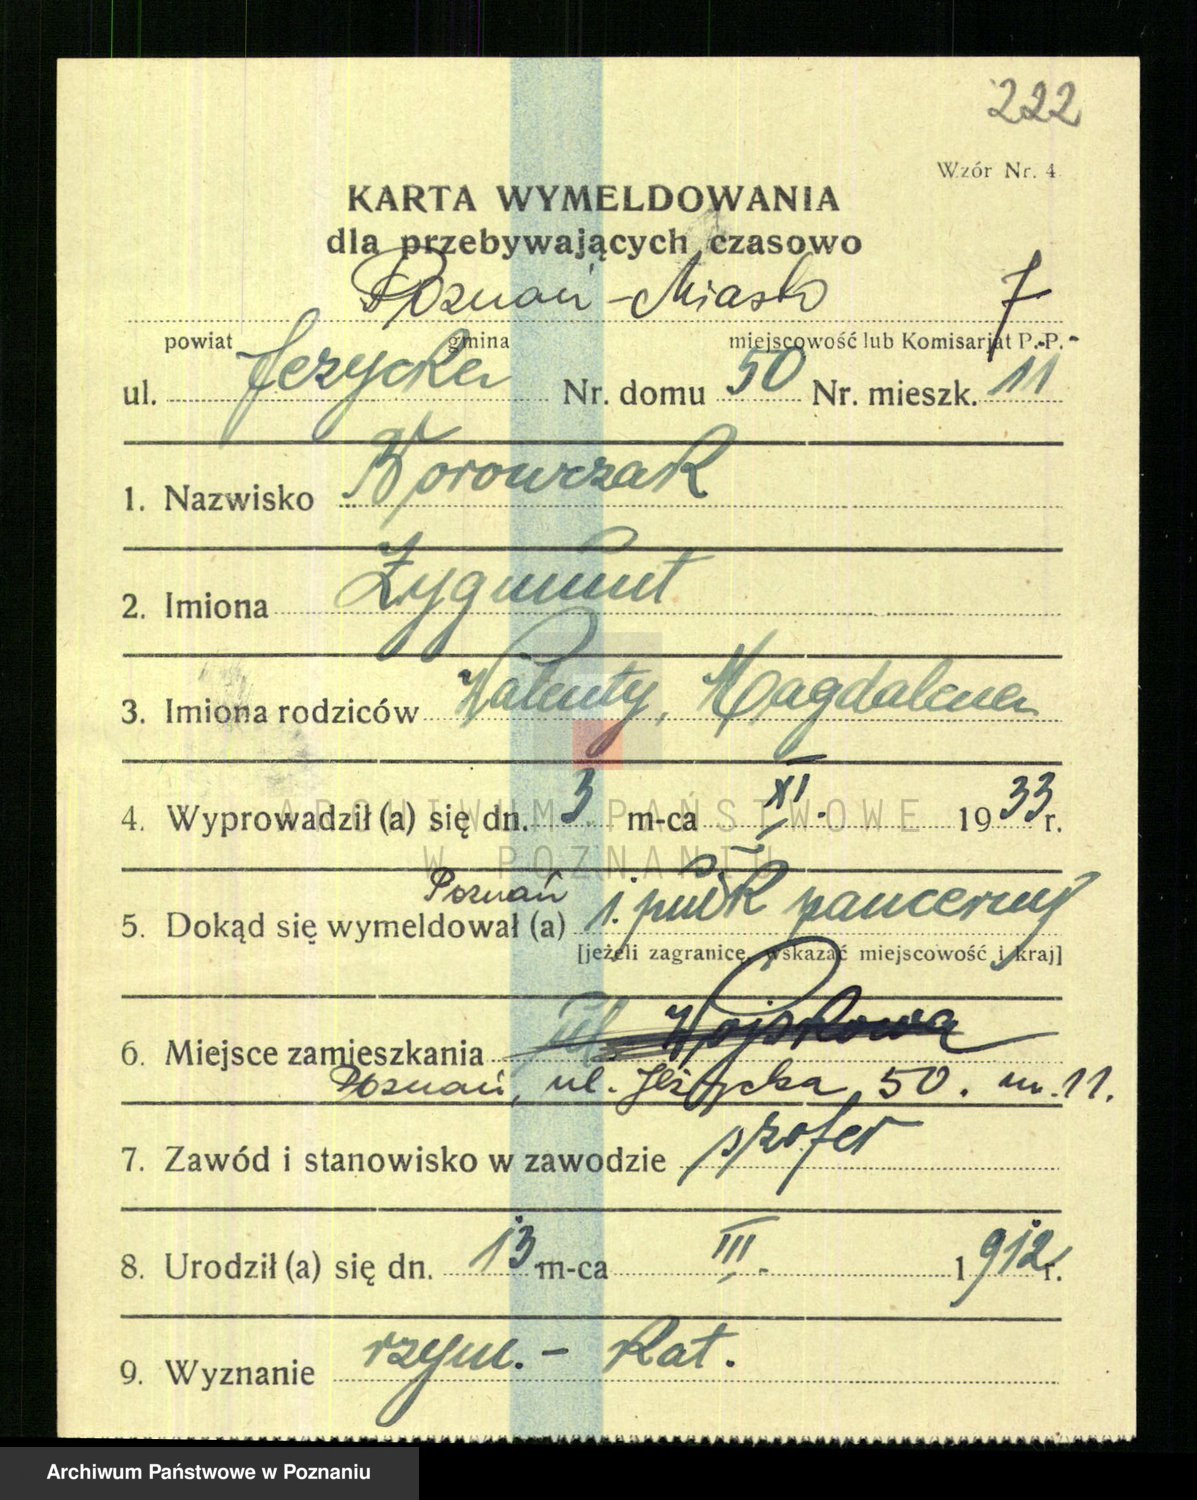 222
Wzór Nr. 4
KARTA WYMELDOWANIA
dla przebywających czasowo
Poznań - Miasto 7
powiat gmina miejscowość lub Komisarjat P. P.
ul. Jeżycka Nr. domu 50 Nr. mieszk. 11
1. Nazwisko Worowczak
2. Imiona Zygmunt
3. Imiona rodziców Walenty, Magdalena
4. Wyprowadził (a) się dn. 3 m-ca XI. 1933 r.
ARCHIWUM PAŃSTWOWE
W POZNANIU
Poznań
5. Dokąd się wymeldował (a) 1. pułk pancerny
[jeżeli zagranicę, wskazać miejscowość i kraj]
6. Miejsce zamieszkania ul. Wojskowa
Poznań, ul. Jeżycka 50. m. 11.
7. Zawód i stanowisko w zawodzie szofer
8. Urodził (a) się dn. 13 m-ca III. 1912 r.
9. Wyznanie rzym. - kat.
Archiwum Państwowe w Poznaniu